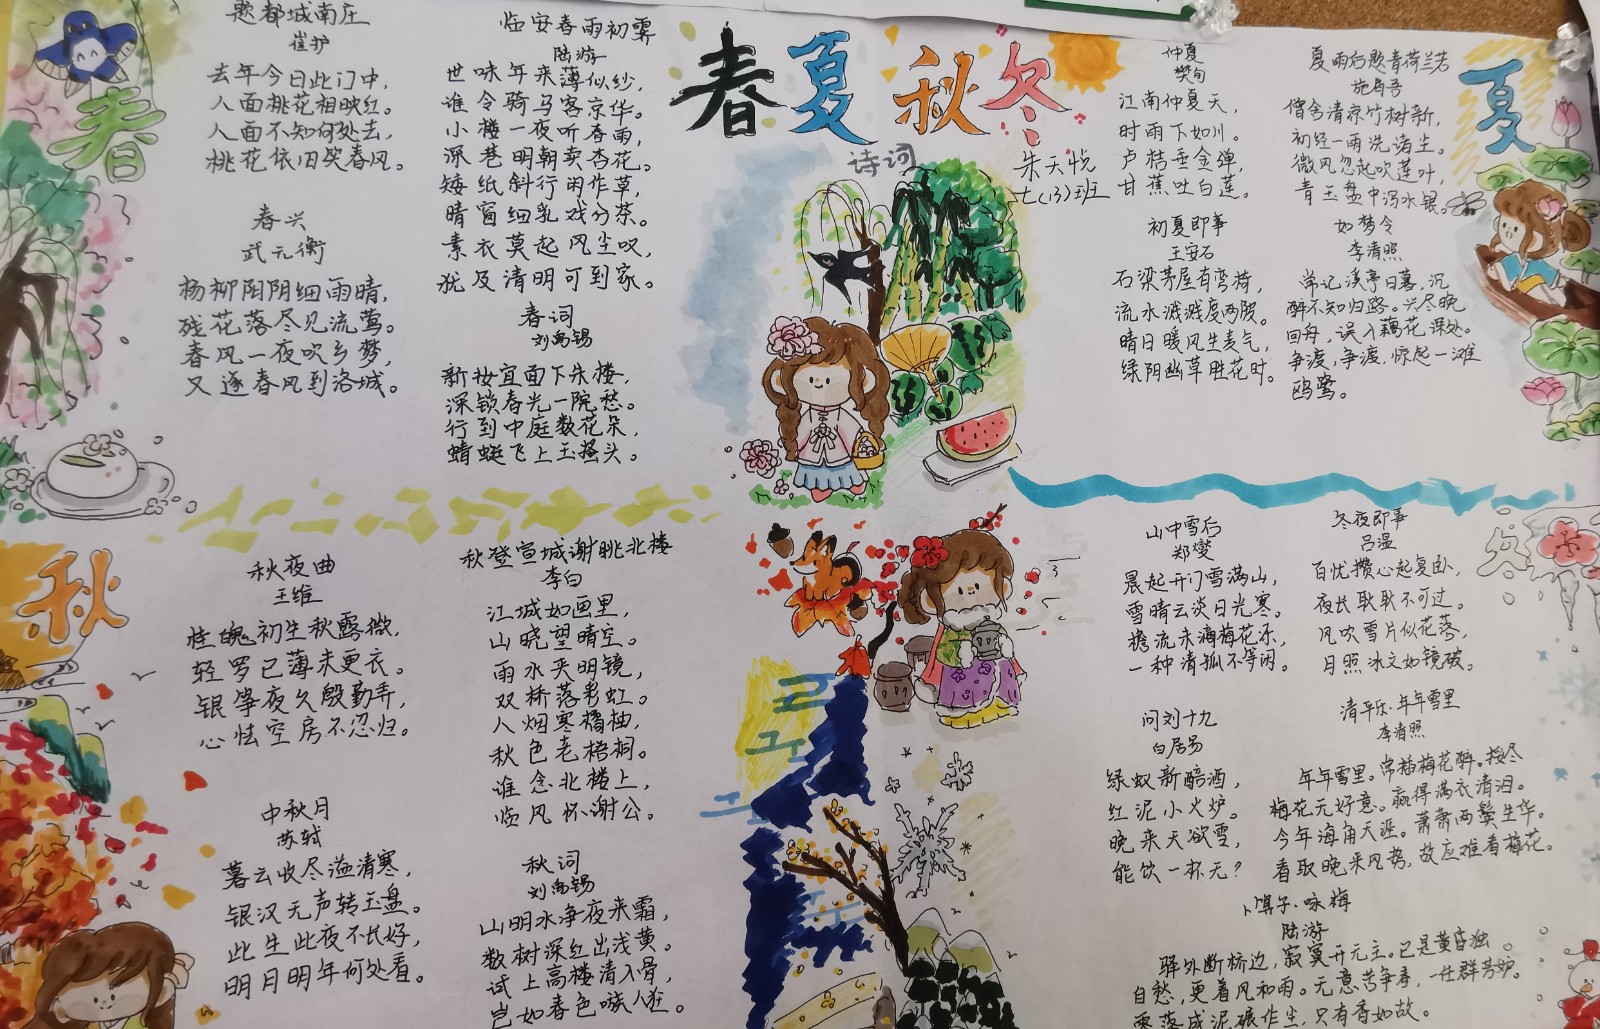 春夏秋冬
诗词
朱天悦
七(13)班
春
题都城南庄
崔护
去年今日此门中，
人面桃花相映红。
人面不知何处去，
桃花依旧笑春风。
春兴
武元衡
杨柳阳阴细雨晴，
残花落尽见流莺。
春风一夜吹乡梦，
又逐春风到洛城。
临安春雨初霁
陆游
世味年来薄似纱，
谁令骑马客京华。
小楼一夜听春雨，
深巷明朝卖杏花。
矮纸斜行闲作草，
晴窗细乳戏分茶。
素衣莫起风尘叹，
犹及清明可到家。
春词
刘禹锡
新妆宜面下朱楼，
深锁春光一院愁。
行到中庭数花朵，
蜻蜓飞上玉搔头。
夏
仲夏
樊恂
江南仲夏天，
时雨下如川。
卢桔垂金弹，
甘蕉吐白莲。
初夏即事
王安石
石梁茅屋有弯碕，
流水溅溅度两陂。
晴日暖风生麦气，
绿阴幽草胜花时。
夏雨后题青荷兰若
施肩吾
僧舍清凉竹树新，
初经一雨洗诸尘。
微风忽起吹莲叶，
青玉盘中泻水银。
如梦令
李清照
常记溪亭日暮，沉
醉不知归路。兴尽晚
回舟，误入藕花深处。
争渡，争渡，惊起一滩
鸥鹭。
秋
秋夜曲
王维
桂魄初生秋露微，
轻罗已薄未更衣。
银筝夜久殷勤弄，
心怯空房不忍归。
中秋月
苏轼
暮云收尽溢清寒，
银汉无声转玉盘。
此生此夜不长好，
明月明年何处看。
秋登宣城谢眺北楼
李白
江城如画里，
山晓望晴空。
雨水夹明镜，
双桥落彩虹。
人烟寒橘柚，
秋色老梧桐。
谁念北楼上，
临风怀谢公。
秋词
刘禹锡
山明水净夜来霜，
数树深红出浅黄。
试上高楼清入骨，
岂如春色嗾人狂。
冬
山中雪后
郑燮
晨起开门雪满山，
雪晴云淡日光寒。
檐流未滴梅花冻，
一种清孤不等闲。
问刘十九
白居易
绿蚁新醅酒，
红泥小火炉。
晚来天欲雪，
能饮一杯无？
冬夜即事
吕温
百忧攒心起复卧，
夜长耿耿不可过。
风吹雪片似花落，
月照冰文如镜破。
清平乐·年年雪里
李清照
年年雪里。常插梅花醉。挼尽
梅花无好意。赢得满衣清泪。
今年海角天涯。萧萧两鬓生华。
看取晚来风势，故应难看梅花。
卜算子·咏梅
陆游
驿外断桥边，寂寞开无主。已是黄昏独
自愁，更着风和雨。无意苦争春，一任群芳妒。
零落成泥碾作尘，只有香如故。